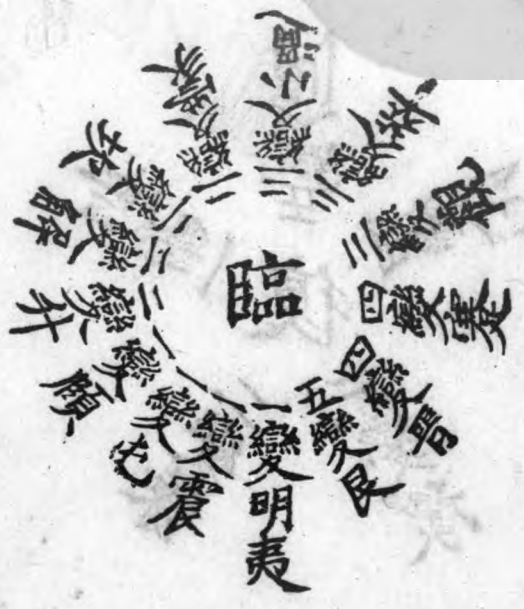 臨
一變明夷
一變震
一變屯
一變頤
二變升
二變解
二變坎
二變蒙
三變小過
三變萃
三變觀
四變蹇
四變晋
五變艮